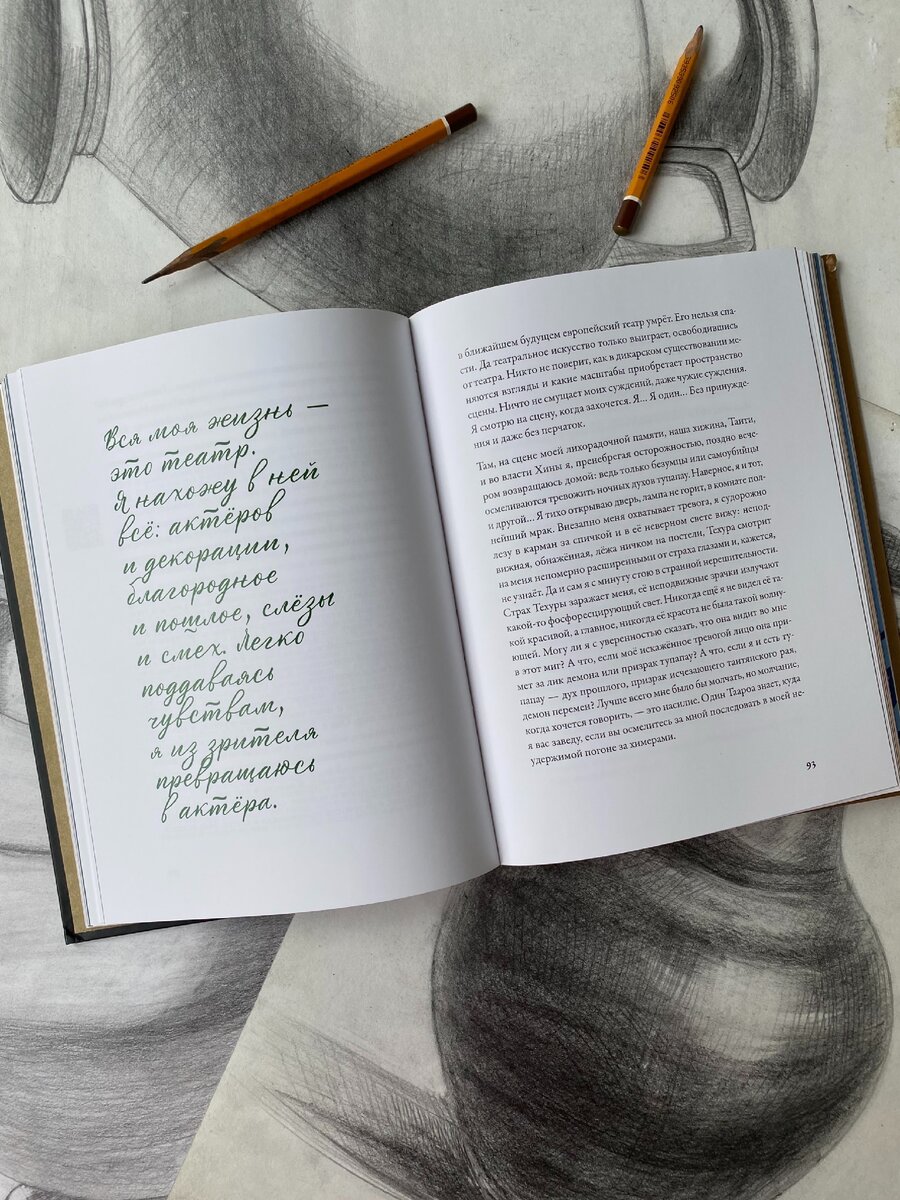 Вся моя жизнь —
это театр.
Я нахожу в ней
всё: актёров
и декорации,
благородное
и пошлое, слёзы
и смех. Легко
поддаваясь
чувствам,
я из зрителя
превращаюсь
в актёра.
в ближайшем будущем европейский театр умрёт. Его нельзя спа-
сти. Да театральное искусство только выиграет, освободившись
от театра. Никто не поверит, как в дикарском существовании ме-
няются взгляды и какие масштабы приобретает пространство
сцены. Ничто не смущает моих суждений, даже чужие суждения.
Я смотрю на сцену, когда захочется. Я... Я один... Без принужде-
ния и даже без перчаток.
Там, на сцене моей лихорадочной памяти, наша хижина, Таити,
и во власти Хины я, пренебрегая осторожностью, поздно вече-
ром возвращаюсь домой: ведь только безумцы или самоубийцы
осмеливаются тревожить ночных духов тупапау. Наверное, я и тот,
и другой... Я тихо открываю дверь, лампа не горит, в комнате пол-
нейший мрак. Внезапно меня охватывает тревога, я судорожно
лезу в карман за спичкой и в её неверном свете вижу: непод-
вижная, обнажённая, лёжа ничком на постели, Техура смотрит
на меня непомерно расширенными от страха глазами и, кажется,
не узнаёт. Да и сам я с минуту стою в странной нерешительности.
Страх Техуры заражает меня, её неподвижные зрачки излучают
какой-то фосфоресцирующий свет. Никогда ещё я не видел её та-
кой красивой, а главное, никогда её красота не была такой волну-
ющей. Могу ли я с уверенностью сказать, что она видит во мне
в этот миг? А что, если моё искажённое тревогой лицо она при-
мет за лик демона или призрак тупапау? А что, если я и есть ту-
папау — дух прошлого, призрак исчезающего таитянского рая,
демон перемен? Лучше всего мне было бы молчать, но молчание,
когда хочется говорить, — это насилие. Один Таароа знает, куда
я вас заведу, если вы осмелитесь за мной последовать в моей не-
удержимой погоне за химерами.
93